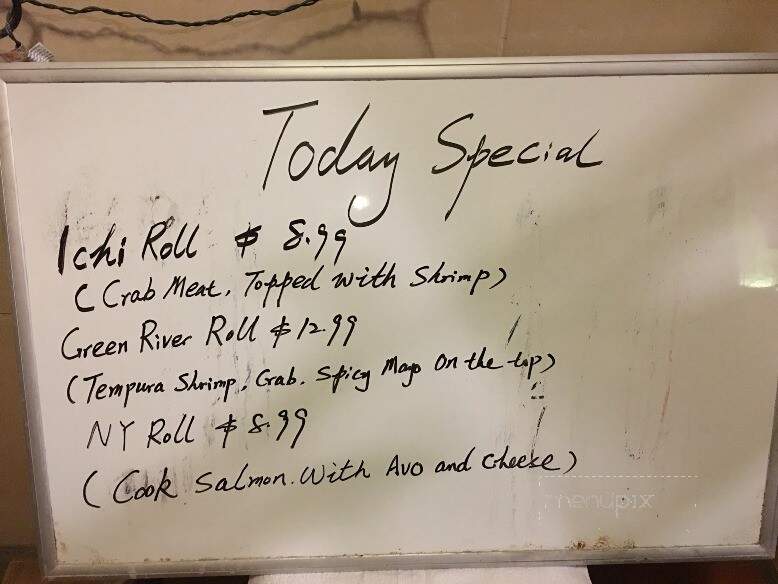 Today Special
Ichi Roll $ 8.99
( Crab Meat. Topped with Shrimp)
Green River Roll $ 12.99
(Tempura Shrimp. Crab. Spicy Mayo On the top)
NY Roll $ 8.99
( Cook Salmon. With Avo and Cheese)
menupix